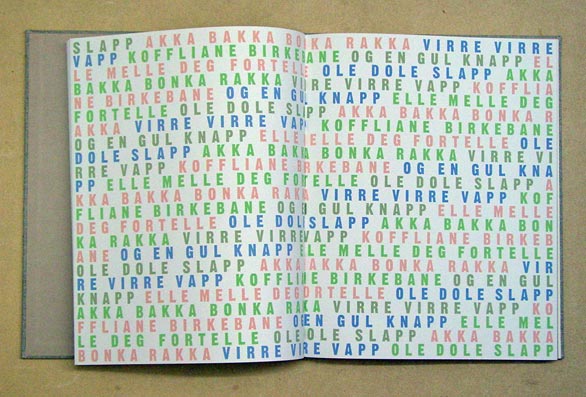 SLAPP AKKA BAKKA BONKA RAKKA VIRRE VIRRE
VAPP KOFFLIANE BIRKEBANE OG EN GUL KNAPP EL
LE MELLE DEG FORTELLE OLE DOLE SLAPP AKKA
BAKKA BONKA RAKKA VIRRE VIRRE VAPP KOFFLIA
NE BIRKEBANE OG EN GUL KNAPP ELLE MELLE DEG
FORTELLE OLE DOLE SLAPP AKKA BAKKA BONKA R
AKKA VIRRE VIRRE VAPP KOFFLIANE BIRKEBANE
OG EN GUL KNAPP ELLE MELLE DEG FORTELLE OLE
DOLE SLAPP AKKA BAKKA BONKA RAKKA VIRRE VI
RRE VAPP KOFFLIANE BIRKEBANE OG EN GUL KNA
PP ELLE MELLE DEG FORTELLE OLE DOLE SLAPP A
KKA BAKKA BONKA RAKKA VIRRE VIRRE VAPP KOF
FLIANE BIRKEBANE OG EN GUL KNAPP ELLE MELLE
DEG FORTELLE OLE DOLSLAPP AKKA BAKKA BON
KA RAKKA VIRRE VIRREVAPP KOFFLIANE BIRKEB
ANE OG EN GUL KNAPP ELLE MELLE DEG FORTELLE
OLE DOLE SLAPP AKKA BAKKA BONKA RAKKA VIR
RE VIRRE VAPP KOFFLIANE BIRKEBANE OG EN GUL
KNAPP ELLE MELLE DEG FORTELLE OLE DOLE SLAPP
AKKA BAKKA BONKA RAKKA VIRRE VIRRE VAPP KO
FFLIANE BIRKEBANE OG EN GUL KNAPP ELLE MEL
LE DEG FORTELLE OLE DOLE SLAPP AKKA BAKKA
BONKA RAKKA VIRRE VIRRE VAPP OLE DOLE SLAPP